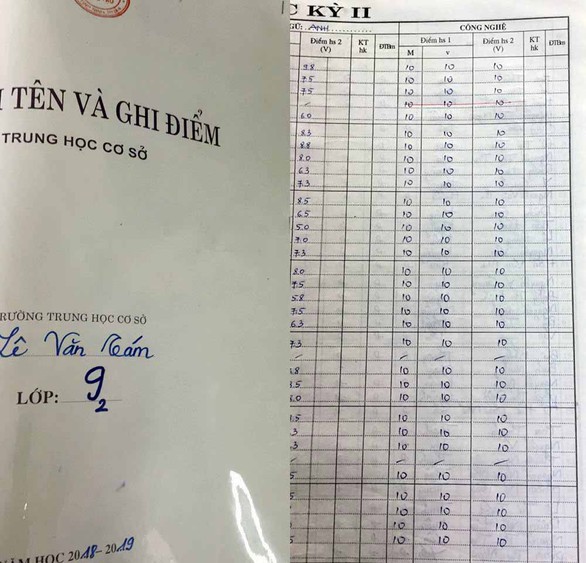 TÊN VÀ GHI ĐIỂM
TRUNG HỌC CƠ SỞ
TRƯỜNG TRUNG HỌC CƠ SỞ
Lê Văn Tám
LỚP: 9 2
NĂM HỌC 2018-2019
C KỲ II
GỮ: ANH CÔNG NGHỆ
Điểm hs 2 (V) KT hk ĐTBm Điểm hs 1 Điểm hs 2 (V) KT hk ĐTBm
M v
9.8 10 10 10
7.5 10 10 10
7.5 10 10 10
/ 10 10 10
6.0 10 10 10
8.3 10 10 10
8.8 10 10 10
8.0 10 10 10
6.3 10 10 10
7.3 10 10 10
8.5 10 10 10
6.5 10 10 10
5.0 10 10 10
7.0 10 10 10
7.3 10 10 10
8.0 10 10 10
9.5 10 10 10
5.8 10 10 10
7.5 10 10 10
6.3 10 10 10
7.3 10 10 10
/ / / /
.8 10 10 10
.5 10 10 10
.0 10 10 10
.5 10 10 10
.3 10 10 10
.3 10 10 10
/ / / /
5 10 10 10
5 10 10 10
10 10 10
10 10 10
5 10 10 10